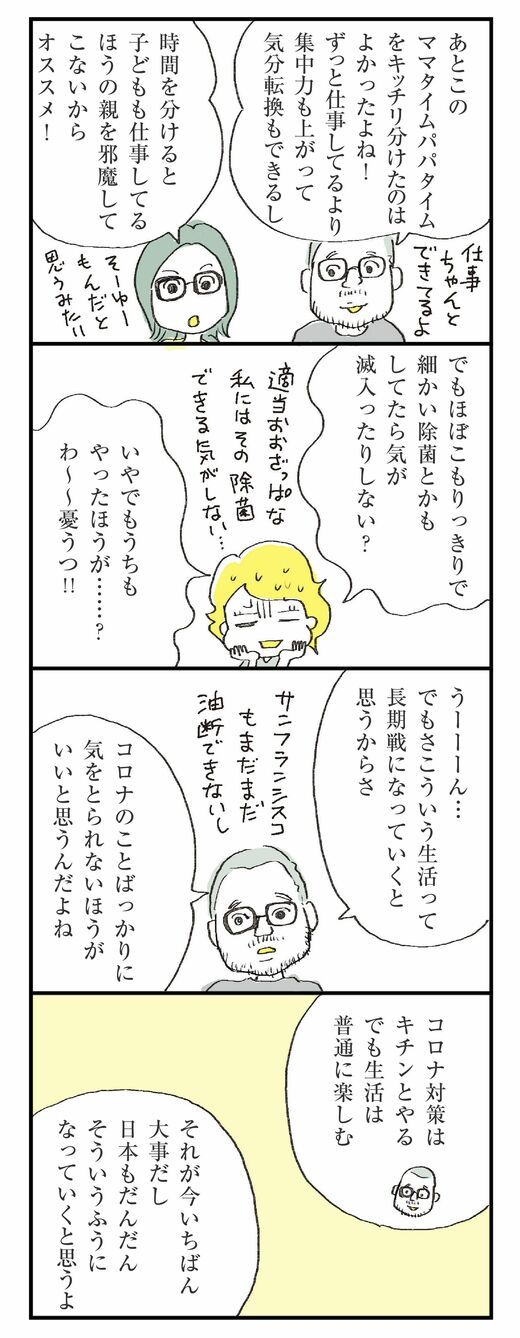 あとこの
ママタイムパパタイム
をキッチリ分けたのは
よかったよね！
ずっと仕事してるより
集中力も上がって
気分転換もできるし
仕事
ちゃんと
できてるよ
時間を分けると
子どもも仕事してる
ほうの親を邪魔して
こないから
オススメ！
そーゆー
もんだと
思うみたい
でもほぼこもりっきりで
細かい除菌とかも
してたら気が
滅入ったりしない？
適当おおざっぱな
私にはその除菌
できる気がしない…
いやでもうちも
やったほうが……？
わ〜〜憂うつ!!
うーーーん…
でもさこういう生活って
長期戦になっていくと
思うからさ
サンフランシスコ
もまだまだ
油断できないし
コロナのことばっかりに
気をとられないほうが
いいと思うんだよね
コロナ対策は
キチンとやる
でも生活は
普通に楽しむ
それが今いちばん
大事だし
日本もだんだん
そういうふうに
なっていくと思うよ